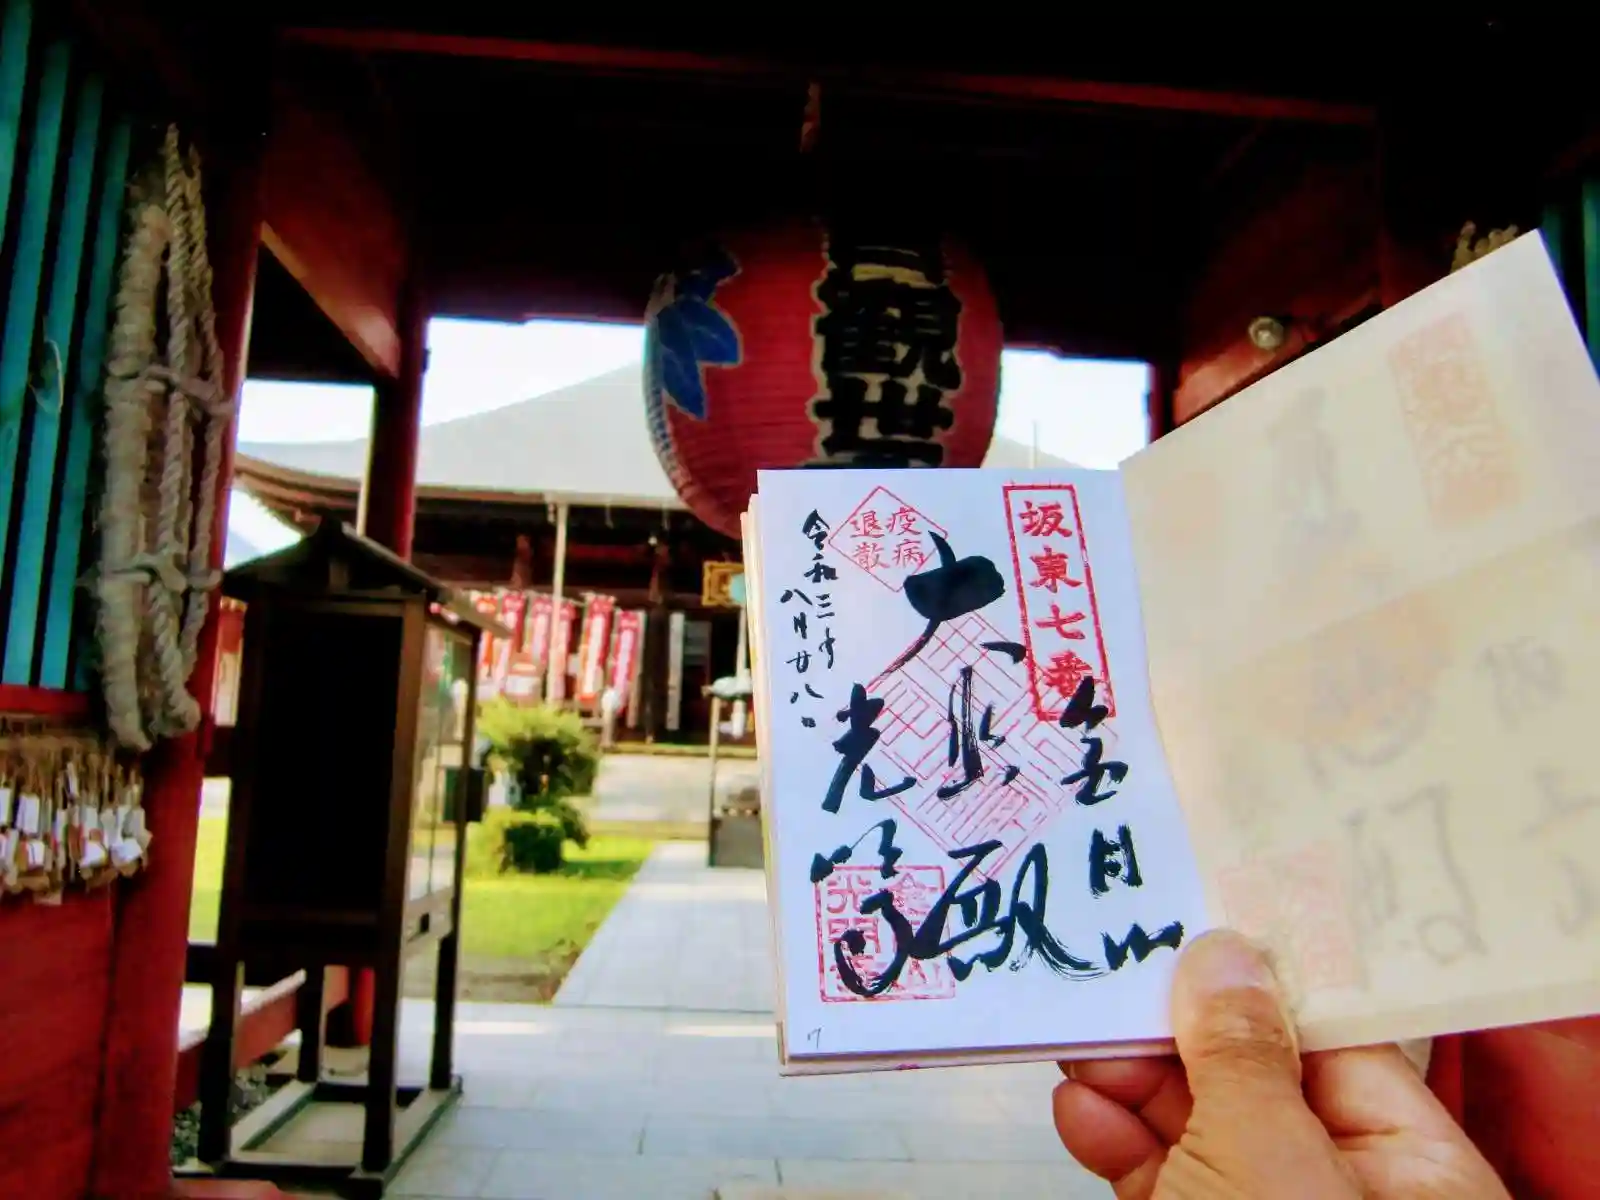 観世
坂東七番
金目山
大悲殿
疫病
退散
光明寺
令和三年
八月廿八日
7